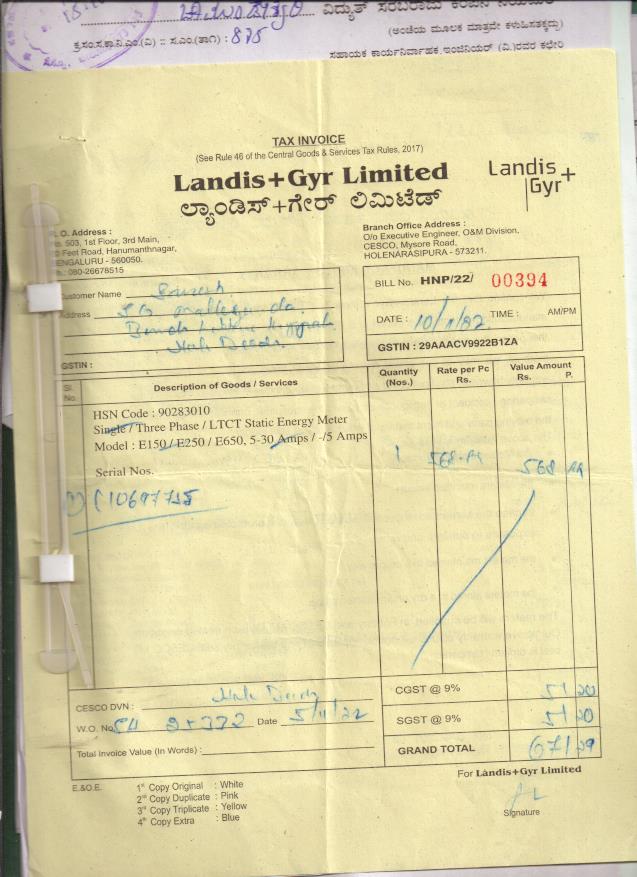 ವಿದ್ಯುತ್ ಸರಬರಾಜು
(ಅಂಚೆಯ ಮೂಲಕ ಮಾತ್ರವೇ ಕಳುಹಿಸತಕ್ಕದ್ದು)
ಸಹಾಯಕ ಕಾರ್ಯನಿರ್ವಾಹಕ ಇಂಜಿನಿಯರ್ (ವಿ.)ರವರ ಕಛೇರಿ
TAX INVOICE
(See Rule 46 of the Central Goods & Services Tax Rules, 2017)
Landis+Gyr Limited
Landis Gyr+
ಲ್ಯಾಂಡಿಸ್+ಗೇರ್ ಲಿಮಿಟೆಡ್
O. Address :
503, 1st Floor, 3rd Main,
Feet Road, Hanumanthnagar,
ENGALURU - 560050.
: 080-26678515
Branch Office Address :
O/o Executive Engineer, O&M Division,
CESCO, Mysore Road,
HOLENARASIPURA - 573211.
Customer Name
Address
GSTIN :
BILL No. HNP/22/ 00394
DATE : 10/11/22 TIME : AM/PM
GSTIN : 29AAACV9922B1ZA
Sl. No. Description of Goods / Services Quantity (Nos.) Rate per Pc Rs. Value Amount Rs. P.
HSN Code : 90283010
Single / Three Phase / LTCT Static Energy Meter
Model : E150 / E250 / E650, 5-30 Amps / -/5 Amps 1 568 568
Serial Nos.
CESCO DVN :
W.O. No. Date 5/11/22
Total Invoice Value (In Words) :
CGST @ 9% 51 20
SGST @ 9% 51 20
GRAND TOTAL 671 29
E.&O.E. 1st Copy Original : White
2nd Copy Duplicate : Pink
3rd Copy Triplicate : Yellow
4th Copy Extra : Blue
For Landis+Gyr Limited
Signature